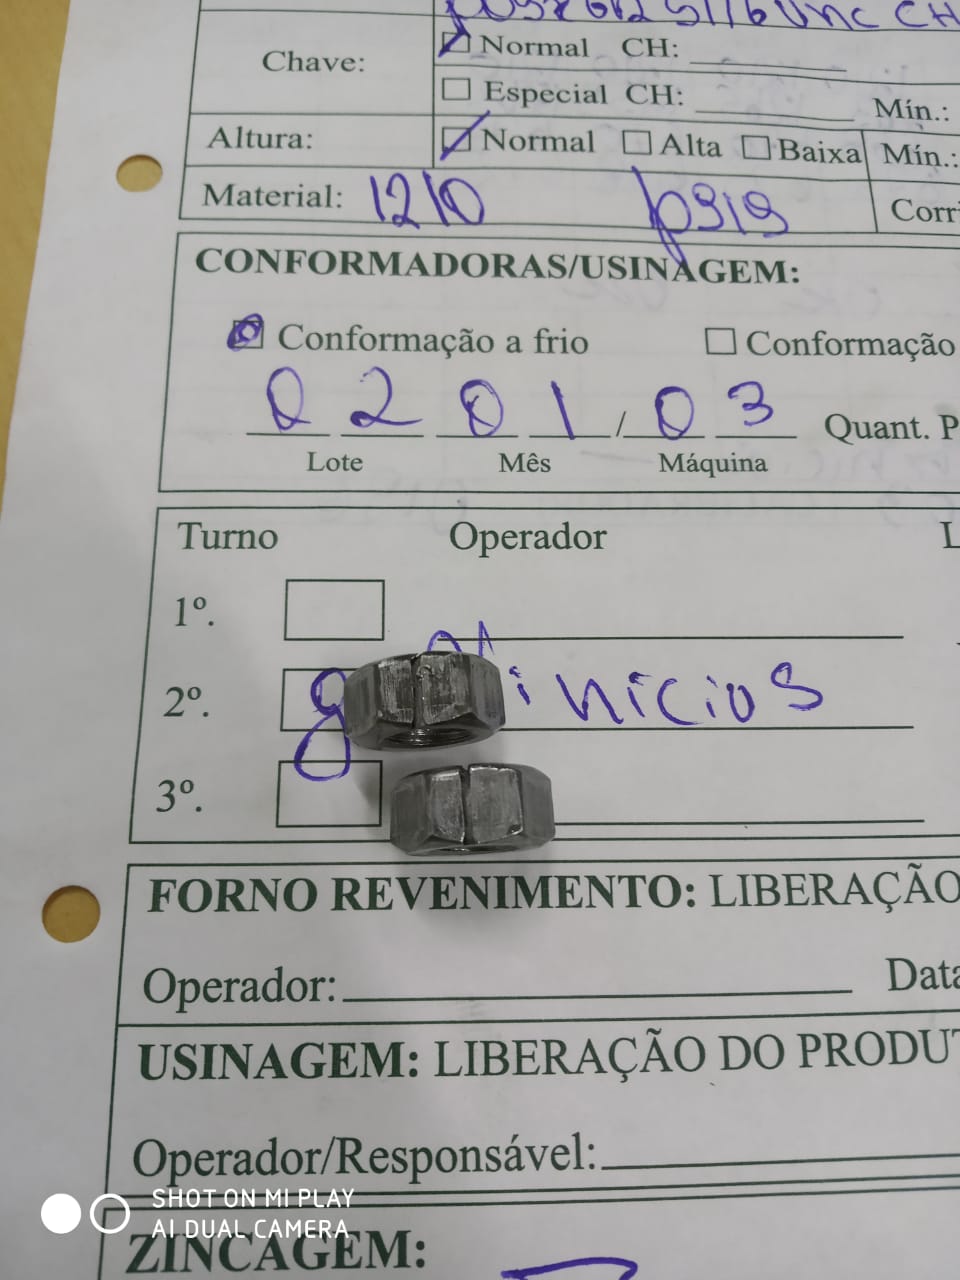 5/16 UNC CH
Chave:
Normal CH:
Especial CH:
Mín.:
Altura:
Normal Alta Baixa Mín.:
Material: 1210
CONFORMADORAS/USINAGEM:
Conformação a frio Conformação
0 2 0 1 / 0 3 Quant. P
Lote Mês Máquina
Turno Operador
1º.
2º. Vinicios
3º.
FORNO REVENIMENTO: LIBERAÇÃO
Operador: Data
USINAGEM: LIBERAÇÃO DO PRODUT
Operador/Responsável:
SHOT ON MI PLAY
AI DUAL CAMERA
ZINCAGEM: